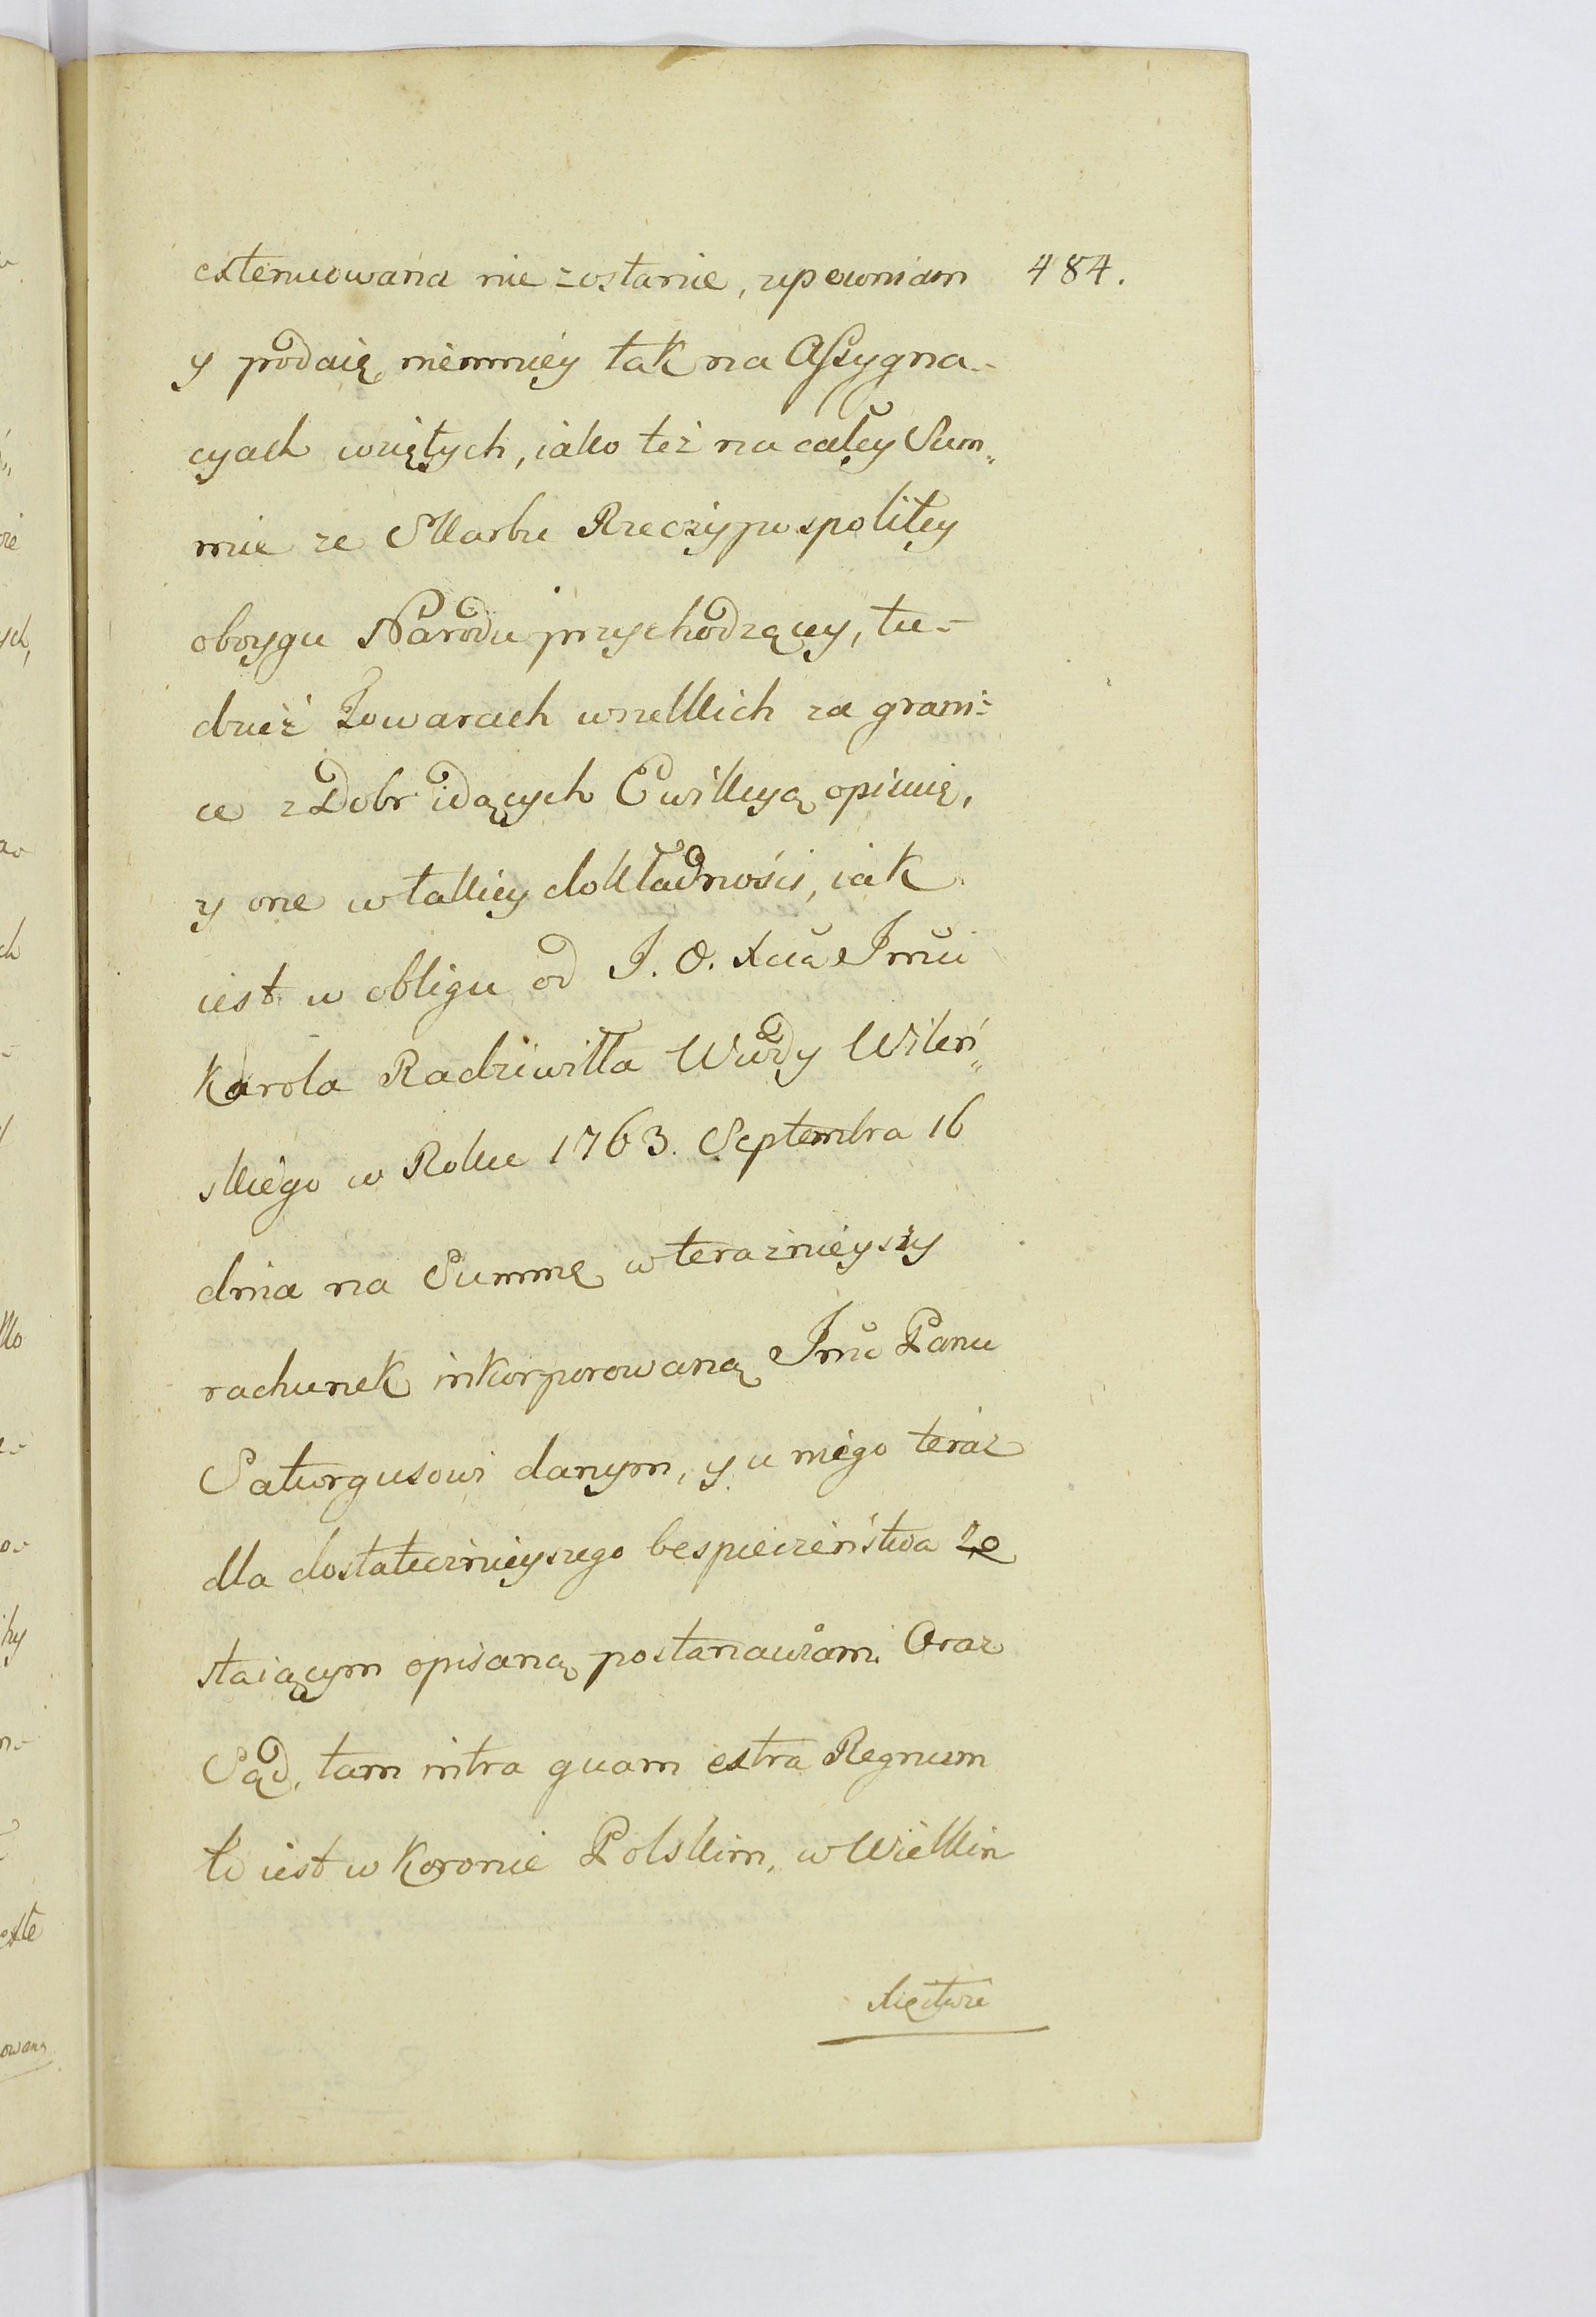 extenuowana nie zostanie, upewniam 484.
y podaię niemniey tak na Assygna-
cyach wziętych, iako też na całey Sum„
mie ze Skarbu Rzeczypospolitey
oboygu Narodu przychodzącey, tu-
dzież Towarach wszelkich za grani-
ce z Dobr idących Ewikcyą opisuię,
y one w takiey dokładności, iak
iest w obligu od J. O. Xcia Jmci
Karola Radziwiłła Wwdy Wileń„
skiego w Roku 1763. Septembra 16
dnia na Summę w teraznieyszy
rachunek inkorporowaną Jmc Panu
Saturgusowi danym, y u niego teraz
dla dostatecznieyszego bespieczeństwa zo
staiącym opisaną postanawiam. Oraz
Sąd, tam intra quam extra Regnum
to iest w Koronie Polskim, w Wielkim
Xięstwie